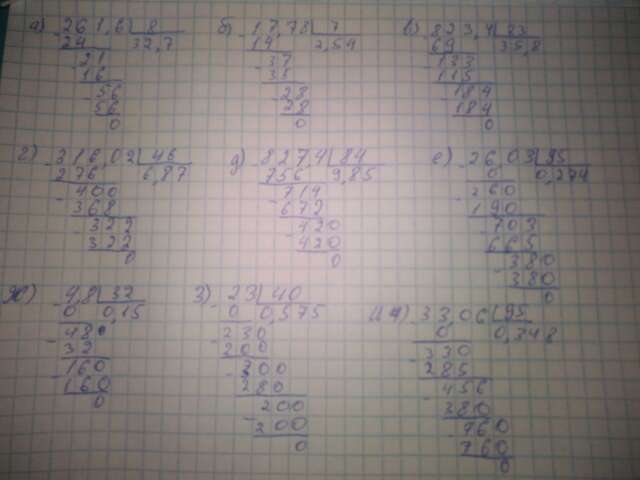 а) 261,6 8 б) 17,78 7 в) 823,4 23
24 32,7 14 2,54 69 35,8
21 37 133
16 35 115
56 28 184
56 28 184
0 0 0
г) 316,02 46 д) 827,4 84 е) 26,03 95
276 6,87 756 9,85 0 0,274
400 714 260
368 672 190
322 420 703
322 420 665
0 0 380
380
0
ж) 4,8 32 з) 23 40 и) 33,06 95
0 0,15 0 0,575 0 0,348
48 230 330
32 200 285
160 300 456
160 280 380
0 200 760
200 760
0 0